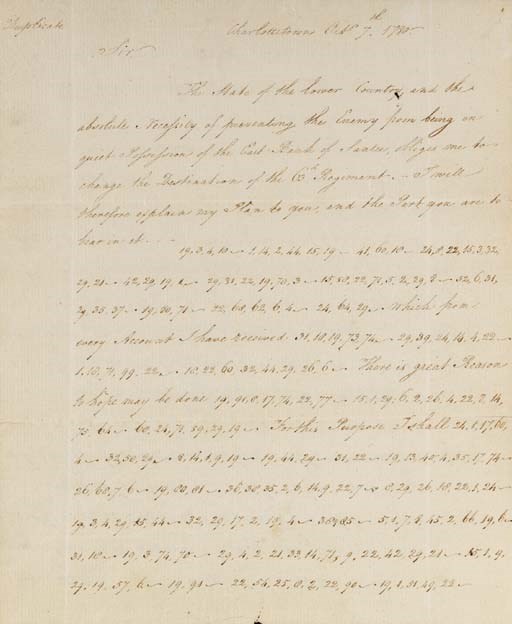 Duplicate
Charlottetown Octr. 7th. 1780.
Sir
The State of the lower Country and the
absolute Necessity of preventing the Enemy from being in
quiet Possession of the East Bank of Santee, obliges me to
change the Destination of the 63d Regiment. I will
therefore explain my Plan to you, and the Part you are to
bear in it.
19, 3, 4, 10 2, 14, 2, 44, 15, 19 41, 60, 10 24, 8, 22, 15, 3, 32,
29, 21 42, 29, 19, 29, 31, 22, 19, 70, 3 15, 22, 71, 5, 2, 29, 52, 6, 31,
29, 35, 37 19, 71 22, 68, 62, 6, 4 24, 64, 29 Which from
every Account I have received 31, 18, 19, 73, 74 29, 39, 24, 14, 4, 22
1, 10, 71, 99, 22 10, 22, 60 32, 44, 29, 26, 6 There is great Reason
to hope may be done 19, 91, 17, 74, 22, 77 15, 1, 29, 6, 2, 26, 4, 22, 2, 14,
73, 64 60, 24, 71, 59, 29, 19 For this Purpose I shall 24, 1, 17, 60,
4 32, 50, 29 8, 14, 1, 9, 19 19, 44, 29 31, 22 19, 13, 4, 35, 17, 74
26, 60, 7, 6 19, 60, 81 36, 35, 2, 6, 14, 9, 22, 7 29, 26, 18, 22, 1, 24
19, 3, 4, 29, 15, 44 32, 29, 17, 2, 19, 4 5, 1, 7, 45, 2, 66, 19, 6
31, 10 19, 3, 74, 70 29, 4, 2, 21, 33, 14, 71, 9, 22, 42 29, 21 15, 1, 9,
29, 19, 57, 6 19, 91 22, 54, 25, 2, 22, 90 19, 1, 31, 49, 22